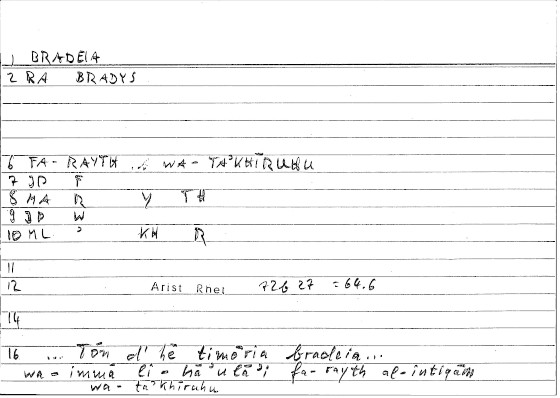 1 BRADEIA
2 RA BRADYS
6 FA- RAYTH ... WA- TAʾKHĪRUHU
7 JP F
8 MA R Y TH
9 JP W
10 ML ʾ KH R
11
12 Arist Rhet 72b 27 = 64.6
14
16 ... Tōn d' hē timōria bradeia...
wa- immā li- hāʾulāʾi fa- rayth al-intiqām
wa- taʾkhīruhu